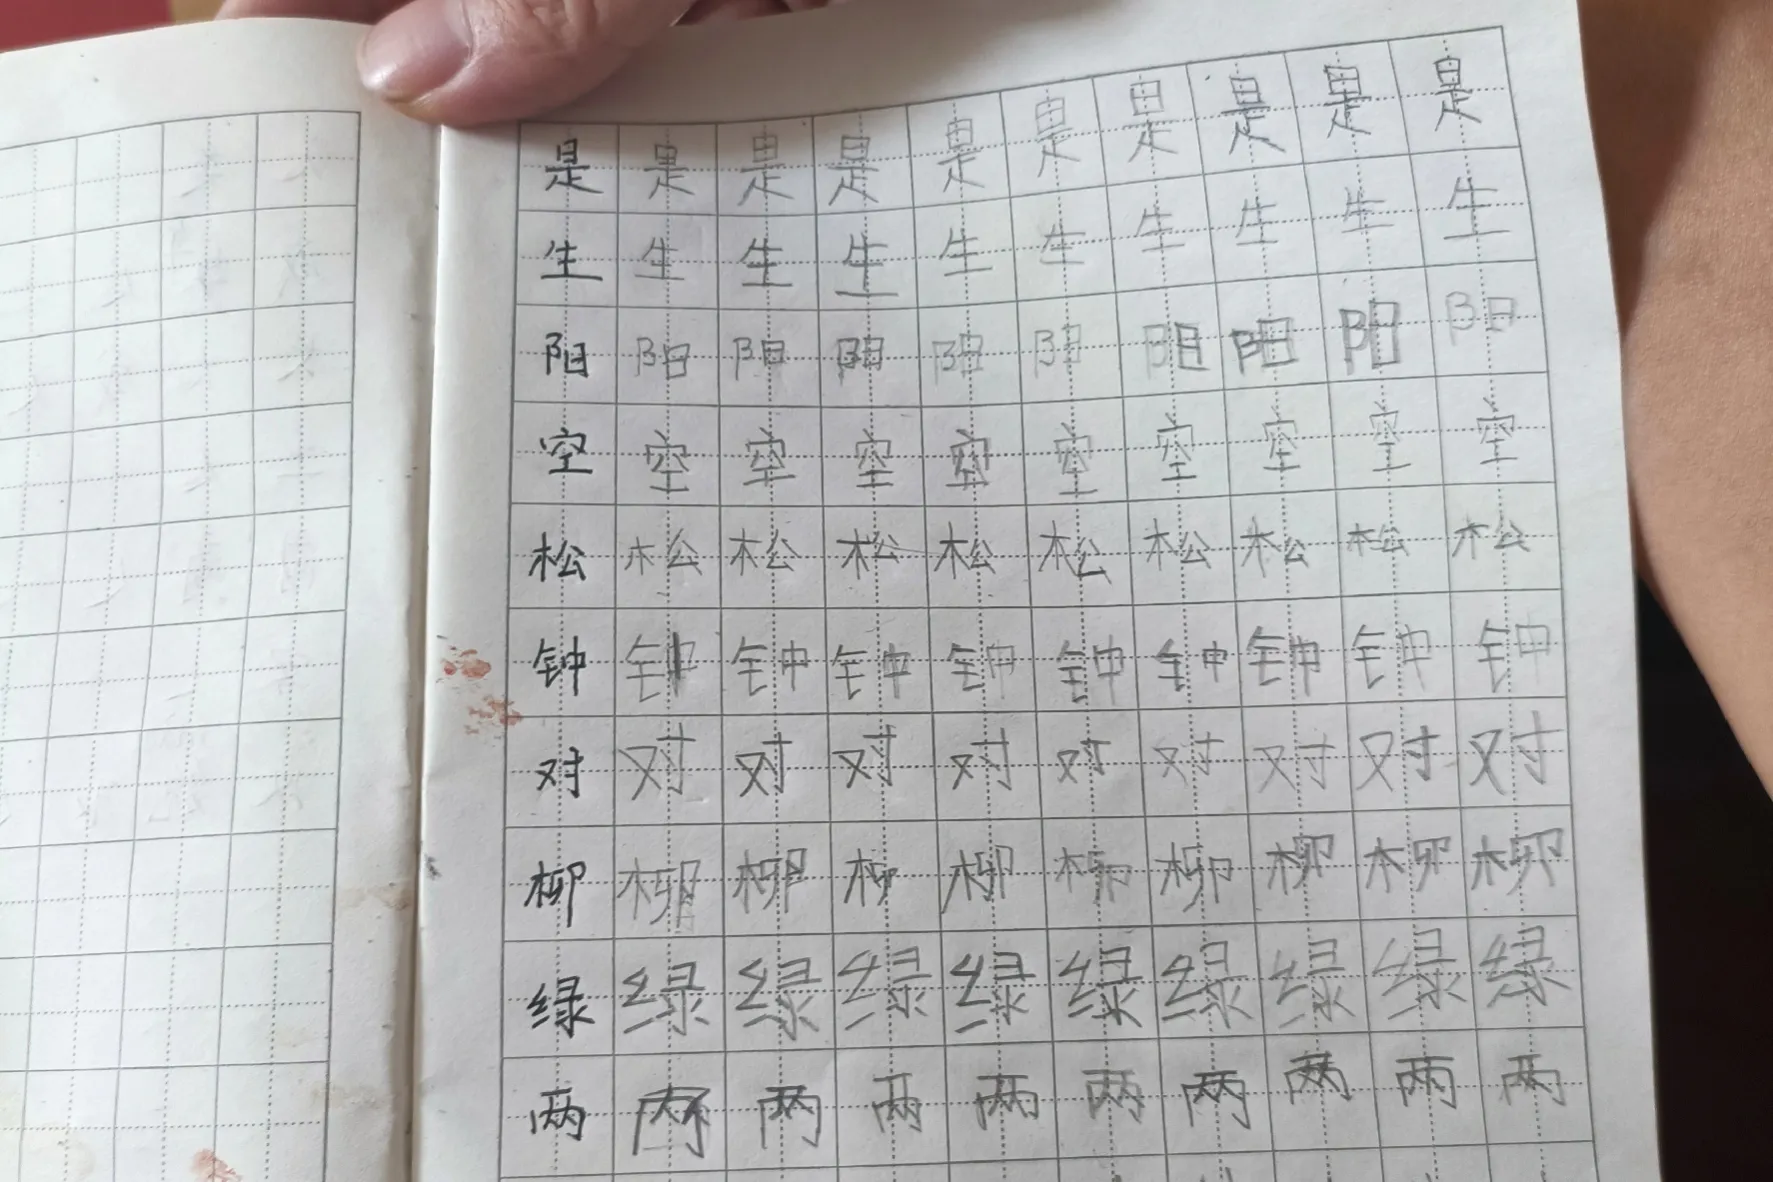 是是是是是是是是是是
生生生生生生生生生生
阳阳阳阳阳阳阳阳阳阳
空空空空空空空空空空
松松松松松松松松松松
钟钟钟钟钟钟钟钟钟钟
对对对对对对对对对对
柳柳柳柳柳柳柳柳柳柳
绿绿绿绿绿绿绿绿绿绿
两两两两两两两两两两